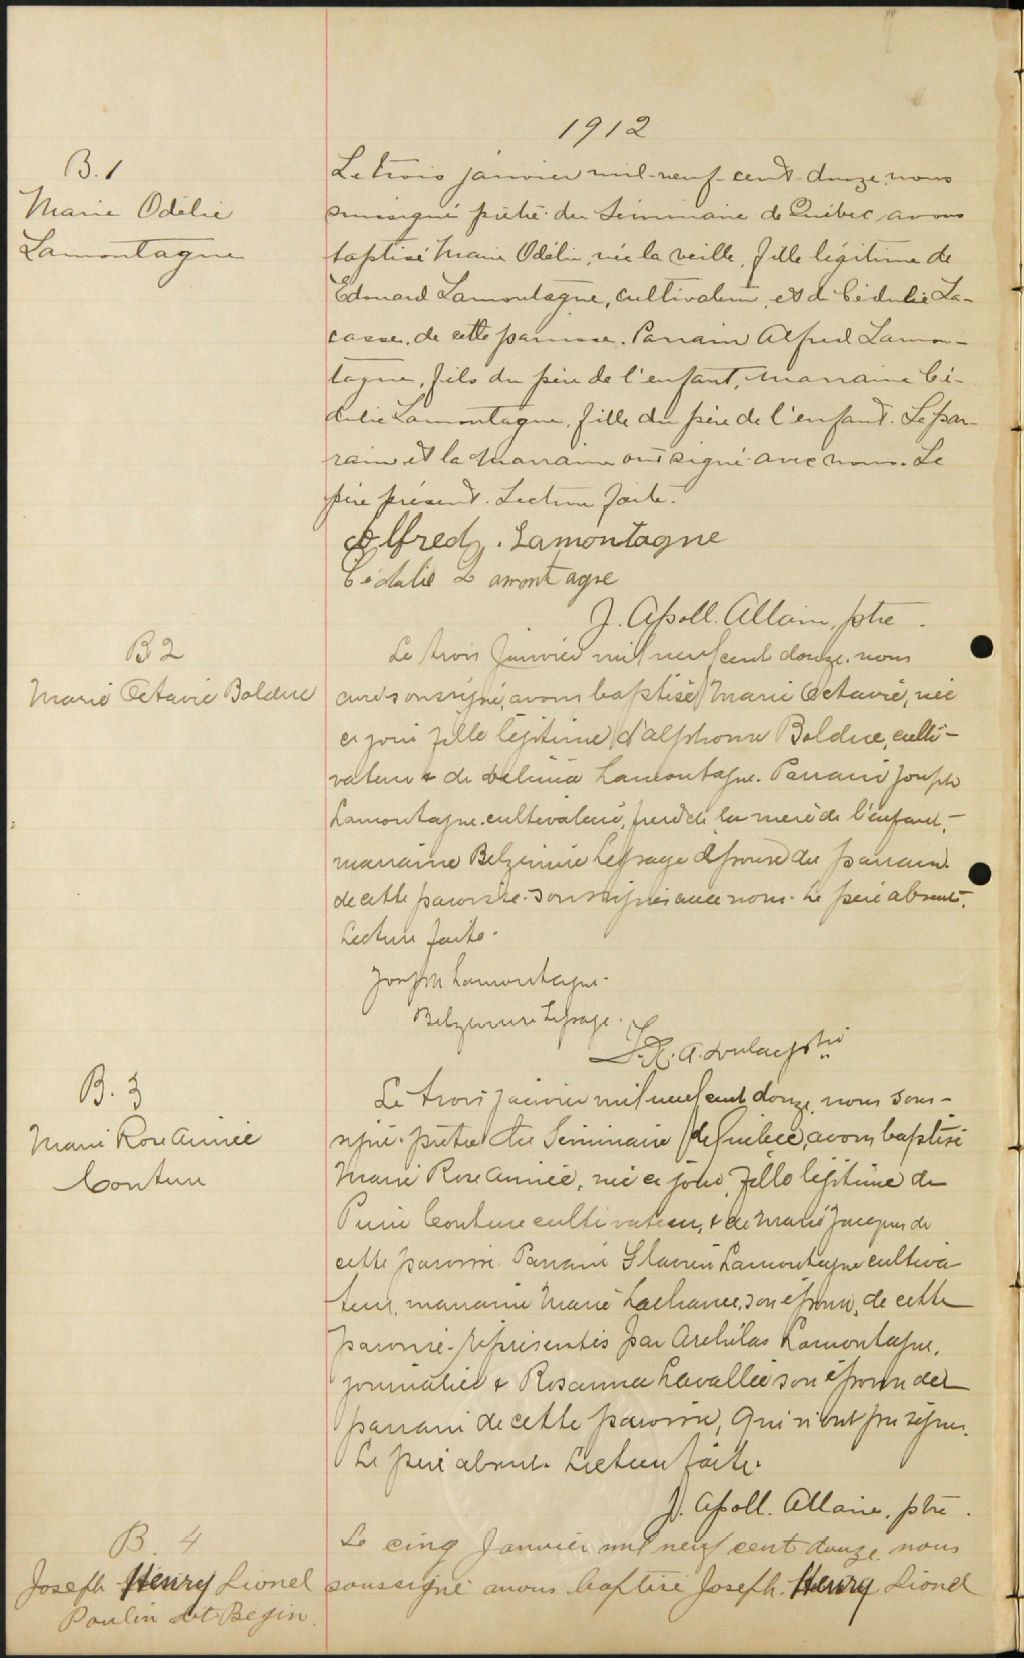 1912
B. 1
Marie Odélie
Lamontagne
Le trois janvier mil-neuf-cent-douze, nous
soussigné prêtre du Séminaire de Québec, avons
baptisé Marie Odélie, née la veille, fille légitime de
Edouard Lamontagne, cultivateur, et de Cédulie La-
casse, de cette paroisse. Parrain Alfred Lamon-
tagne, fils du père de l'enfant, marraine Cé-
dulie Lamontagne, fille du père de l'enfant. Le par-
rain et la marraine ont signé avec nous. Le
père présent. Lecture faite.
Alfred. Lamontagne
Cédulie Lamontagne
J. Apoll. Allaire, ptre.
B 2
Marie Octavie Bolduc
Le trois Janvier mil neuf cent douze, nous
curé soussigné, avons baptisé Marie Octavie, née
ce jour fille légitime d'alphonse Bolduc, culti-
vateur & de Lamontagne. Parrain Joseph
Lamontagne, cultivateur, de la mère de l'enfant,
marraine Belzemire Lepage épouse du parrain
de cette paroisse, soussignés avec nous. Le père absent.
Lecture faite.
Joseph Lamontagne.
Belzemire Lepage.
ptre
B. 3
Marie Rose Aimée
Couture
Le trois janvier mil neuf cent douze, nous sous-
signé, prêtre du Séminaire de Québec, avons baptisé
Marie Rose Aimée, née ce jour, fille légitime de
Pierre Couture cultivateur, & de Marie Jacques de
cette paroisse. Parrain Lamontagne cultiva
teur, marraine Marie Lachance, son épouse, de cette
paroisse, représentés par Archélas Lamontagne,
journalier & Rosanna Lavallée son épouse de
parrain de cette paroisse, qui n'ont pu signer.
Le père absent. Lecture faite.
J. Apoll. Allaire, ptre.
B. 4
Joseph Henry Lionel
Poulin dit Begin.
Le cinq Janvier mil neuf cent douze, nous
soussigné avons baptisé Joseph Henry Lionel